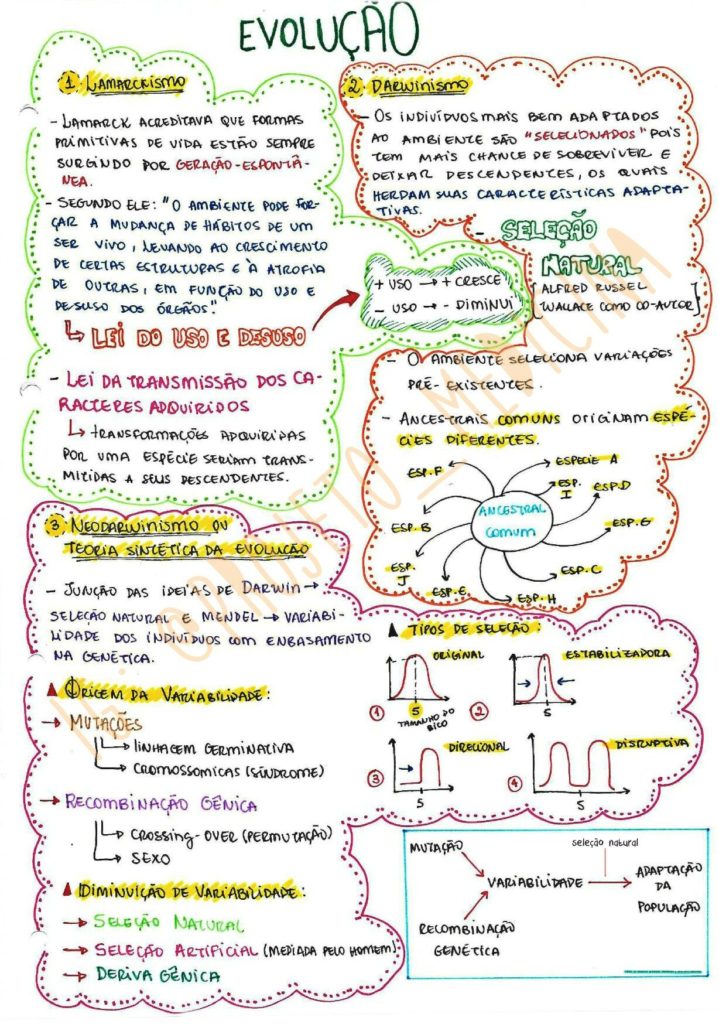 EVOLUÇÃO
1. LAMARCKISMO
- LAMARCK ACREDITAVA QUE FORMAS
PRIMITIVAS DE VIDA ESTÃO SEMPRE
SURGINDO POR GERAÇÃO-ESPONTÂ-
NEA.
- SEGUNDO ELE: "O AMBIENTE PODE FOR-
ÇAR A MUDANÇA DE HÁBITOS DE UM
SER VIVO, LEVANDO AO CRESCIMENTO
DE CERTAS ESTRUTURAS E À ATROFIA
DE OUTRAS, EM FUNÇÃO DO USO E
DESUSO DOS ÓRGÃOS."
LEI DO USO E DESUSO
+ USO → + CRESCE
- USO → - DIMINUI
- LEI DA TRANSMISSÃO DOS CA-
RACTERES ADQUIRIDOS
TRANSFORMAÇÕES ADQUIRIDAS
POR UMA ESPÉCIE SERIAM TRANS-
MITIDAS A SEUS DESCENDENTES.
2. DARWINISMO
- OS INDIVÍDUOS MAIS BEM ADAPTADOS
AO AMBIENTE SÃO "SELECIONADOS" POIS
TEM MAIS CHANCE DE SOBREVIVER E
DEIXAR DESCENDENTES, OS QUAIS
HERDAM SUAS CARACTERÍSTICAS ADAPTA-
TIVAS.
- SELEÇÃO
NATURAL
[ALFRED RUSSEL
WALLACE COMO CO-AUTOR]
- O AMBIENTE SELECIONA VARIAÇÕES
PRÉ-EXISTENTES.
- ANCESTRAIS COMUNS ORIGINAM ESPÉ-
CIES DIFERENTES.
ESP. F
ESPÉCIE A
ESP.
I
ESP. D
ESP. B
ANCESTRAL
COMUM
ESP. G
ESP.
J
ESP. E
ESP. H
ESP. C
3. NEODARWINISMO OU
TEORIA SINTÉTICA DA EVOLUÇÃO
- JUNÇÃO DAS IDEIAS DE DARWIN →
SELEÇÃO NATURAL E MENDEL → VARIABI-
LIDADE DOS INDIVÍDUOS COM ENBASAMENTO
NA GENÉTICA.
ORIGEM DA VARIABILIDADE:
→ MUTAÇÕES
LINHAGEM GERMINATIVA
CROMOSSOMICAS (SÍNDROME)
→ RECOMBINAÇÃO GÊNICA
CROSSING-OVER (PERMUTAÇÃO)
SEXO
DIMINUIÇÃO DE VARIABILIDADE:
→ SELEÇÃO NATURAL
→ SELEÇÃO ARTIFICIAL (MEDIADA PELO HOMEM)
→ DERIVA GÊNICA
TIPOS DE SELEÇÃO:
ORIGINAL
1
5
TAMANHO DO
BICO
ESTABILIZADORA
2
5
DIRECIONAL
3
5
DISRUPTIVA
4
5
MUTAÇÃO
RECOMBINAÇÃO
GENÉTICA
VARIABILIDADE
seleção natural
ADAPTAÇÃO
DA
POPULAÇÃO